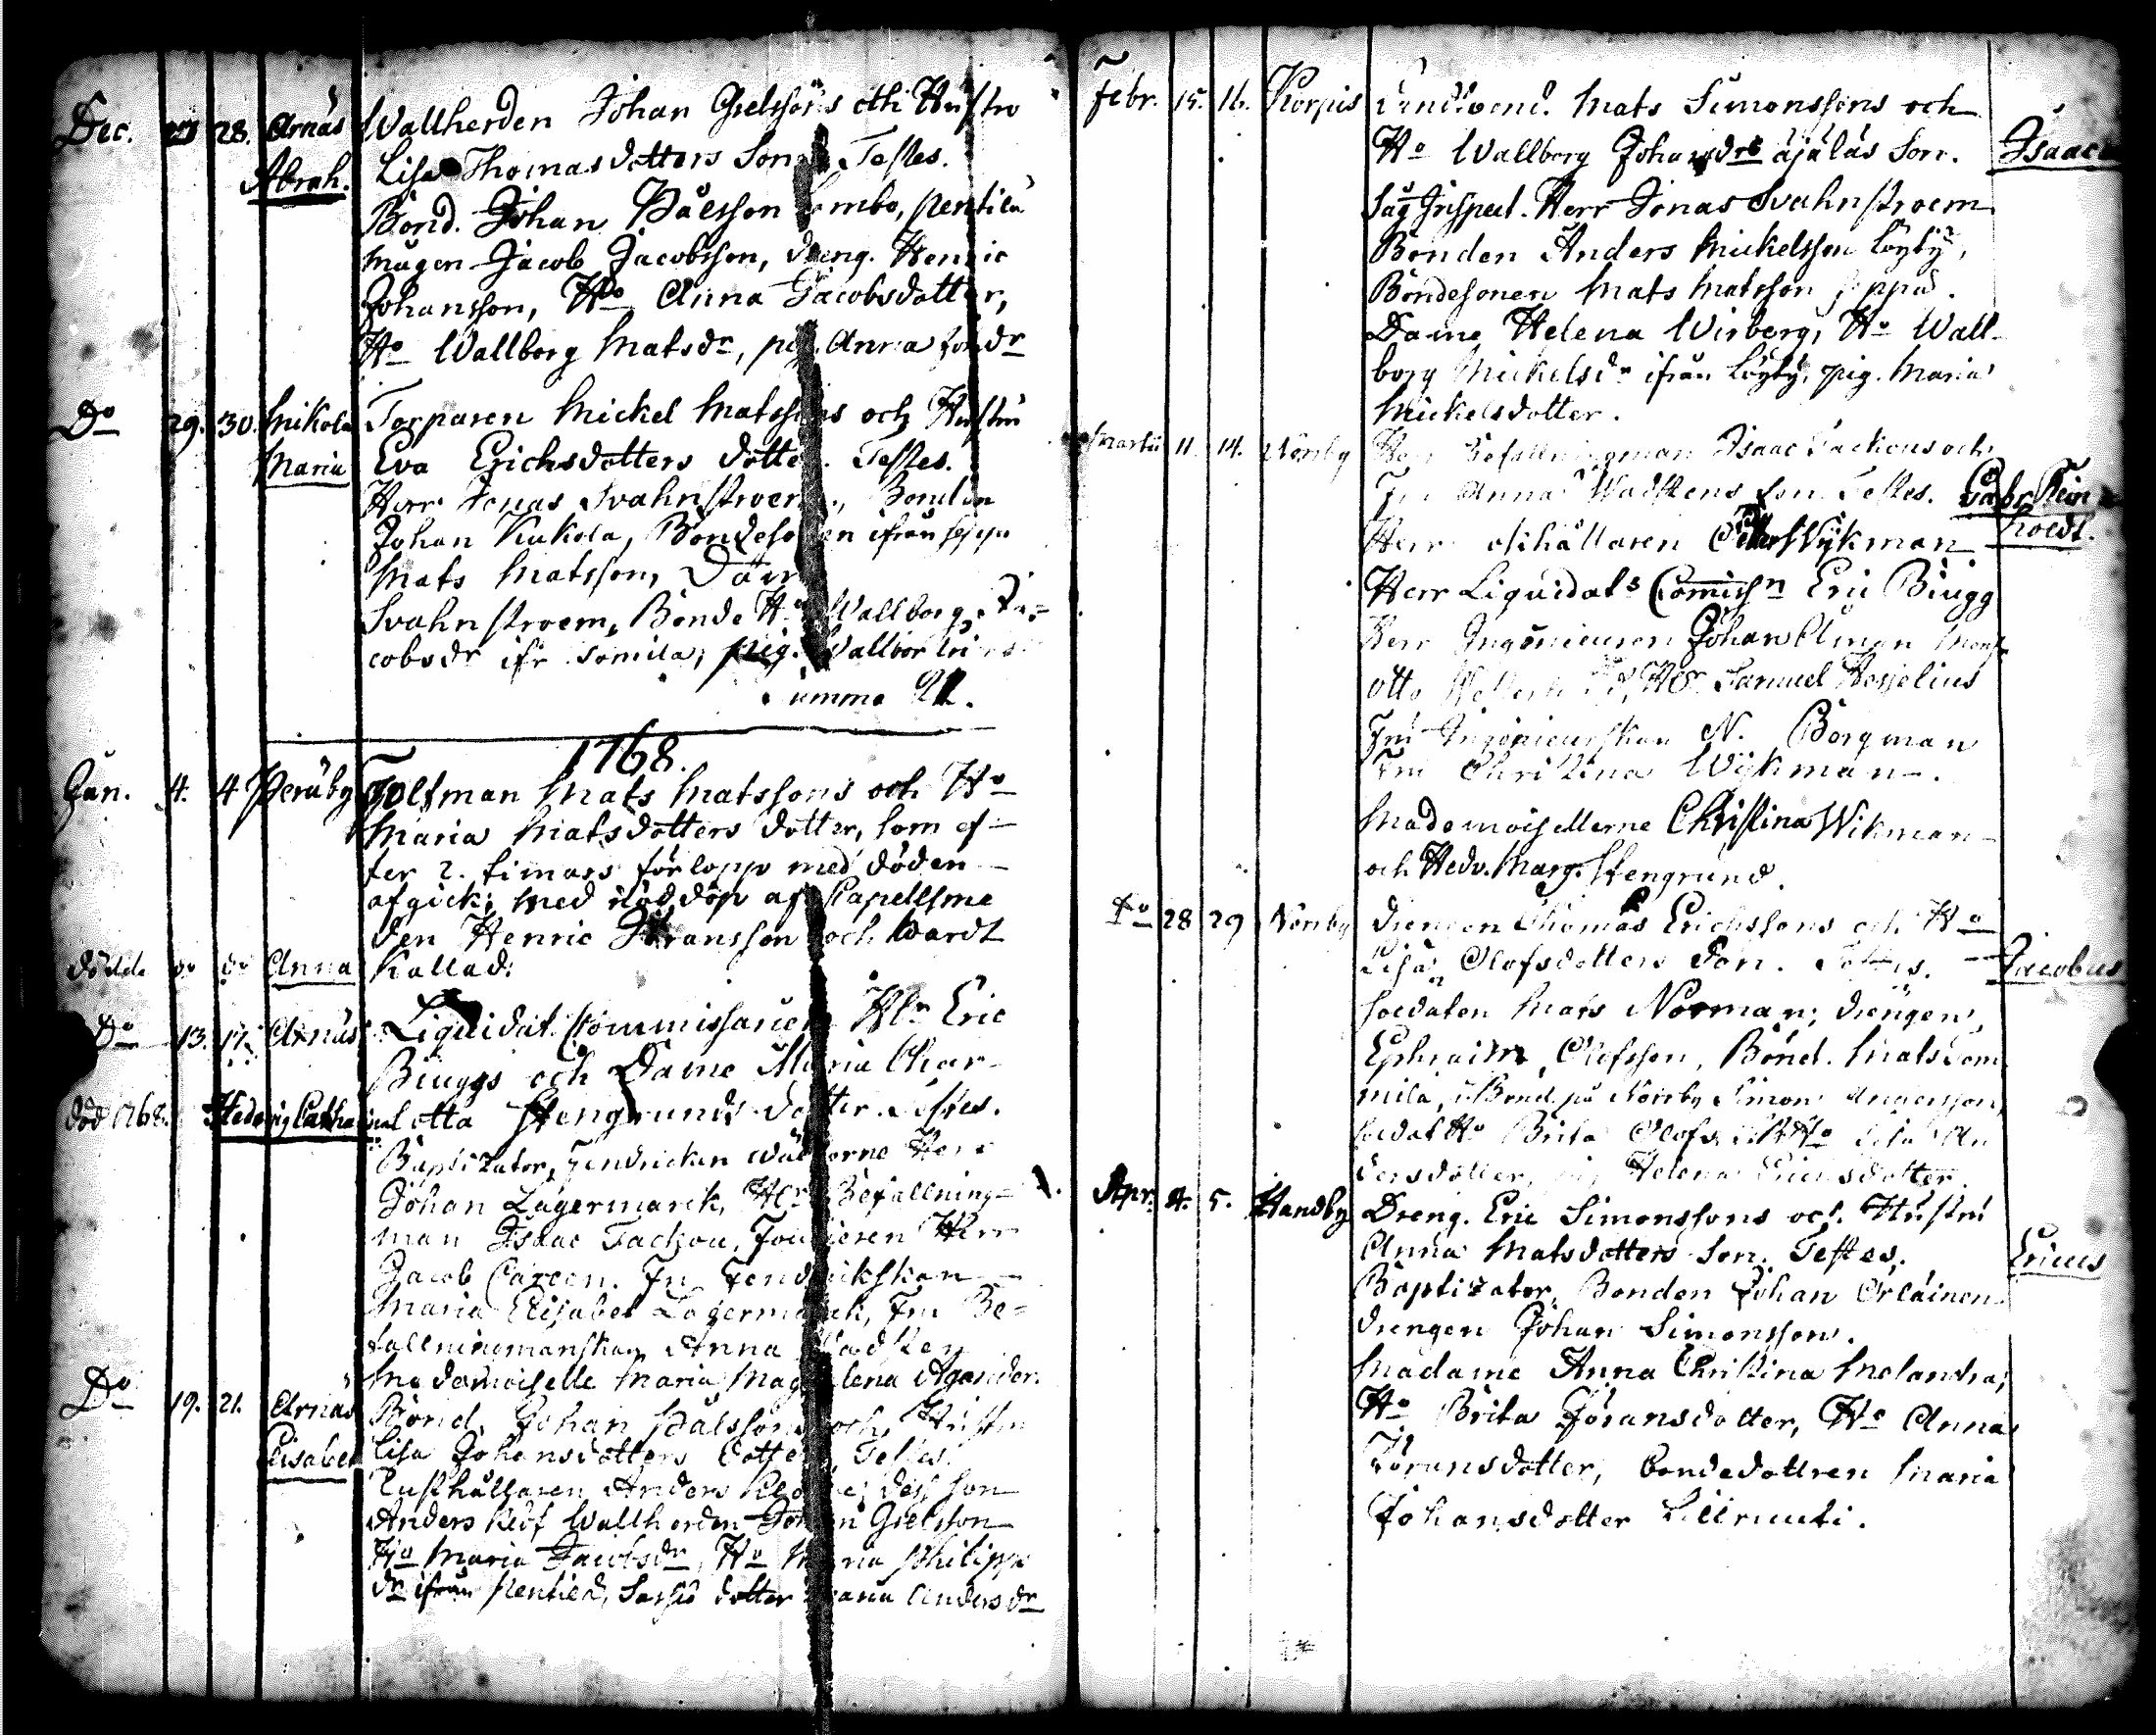 Dec. 27 28. Arnäs Wallherden Johan Grelssons och Hustro
Abrah. Lisa Thomasdotters Son. Testes.
Bond. Johan Pålsson, Pentilä
Mågen Jacob Jacobsson, dreng. Henric
Johansson, Ho Anna Jacobsdotter,
Ho Wallborg Matsdr, pig. Anna
Do 29. 30. Mikola Torparen Mickel Matssons och Hustru
Maria Eva Erichsdotters dotter. Testes.
Herr Jonas Svahnstroem, Bonden
Johan Kukola, Bondesonen ifrån
Mats Matsson, Dame
Svahnstroem, Bonde Ho Wallborg Ja=
cobsdr ifr Somila, pig. Wallbor
Summa
1768.
Jan. 4. 4 Peruby Tolfman Mats Matssons och Ho
Maria Matsdotters dotter, som ef-
ter 2. timars förlopp med döden
afgick; med nöddöp af Capellsme
den Henric Jöransson och wardt
dödde do do Anna Kallad:
Do 13. 17. Arnäs Liquidat. Commissarien Hr Eric
Biuggs och Dame Maria Char-
död 1768. Hedvig Catharina lotta Stengrunds dotter. Testes.
Baptizator, Fendricken Herr
Johan Lagermarck, Hr Befallning=
man Isaac Tackou, Herr
Jacob Careen. Fru Fendrickskan
Maria Elisabet Lagermarck, Fru Be=
fallningmanskan Anna Wadsten
Mademoiselle Maria Magdalena Agander.
Do 19. 21. Arnäs Bond. Johan Pålssons och Hustru
Elisabet Lisa Johansdotters dotter, Testes.
Rusthållaren Anders dess son
Anders Wallherden Johan Grelsson
Ho Maria Jacobsdr, Ho Maria Philipp
dr ifrån Pentilä, dotter Maria Andersdr
Febr. 15. 16. Korpis Landbond. Mats Simonssons och
Ho Wallborg Johansdrs Son. Isaac
Såg Inspect. Herr Jonas Svahnstroem
Bonden Anders Mickelsson Löyty,
Bondesonen Mats Matsson
Dame Helena Wirberg, Ho Wall-
borg Mickelsdr ifrån Löyty, pig. Maria
Mickelsdotter.
Martii 11. 14. Norrby Herr Befallningman Isaac Tackous och
Fru Anna Wadstens son Testes. Gabr. Rein
Herr Wijkman holdt.
Herr Liquidats Commissn Eric Biugg
Herr Ingenieuren Johan Alman Mons.
Otto Hr Samuel Hasselius
Fru Ingenieurskan N. Borgman
Fru Christina Wijkman.
Mademoisellerne Christina Wikman
och Hedv. Marg. Stengrund.
Do 28 29 Norrby Drengen Thomas Erichssons och Ho
Lisa Olofsdotters Son. Testes. Jacobus
soldaten Mats Norman; drengen
Ephraim Olofsson, Bond. Mats Som
mila, Bond. på Norrby Simon Andersson,
soldat Ho Brita Olofs Ho Lisa An
dersdotter, pig Helena dotter.
Apr. 4. 5. Handby Dreng. Eric Simonssons och Hustru
Anna Matsdotters Son. Testes. Ericus
Baptizator, Bonden Johan Orlainen
drengen Johan Simonsson.
Madame Anna Christina Melandra,
Ho Brita Jöransdotter, Ho Anna
Jöransdotter, bondedottren Maria
Johansdotter